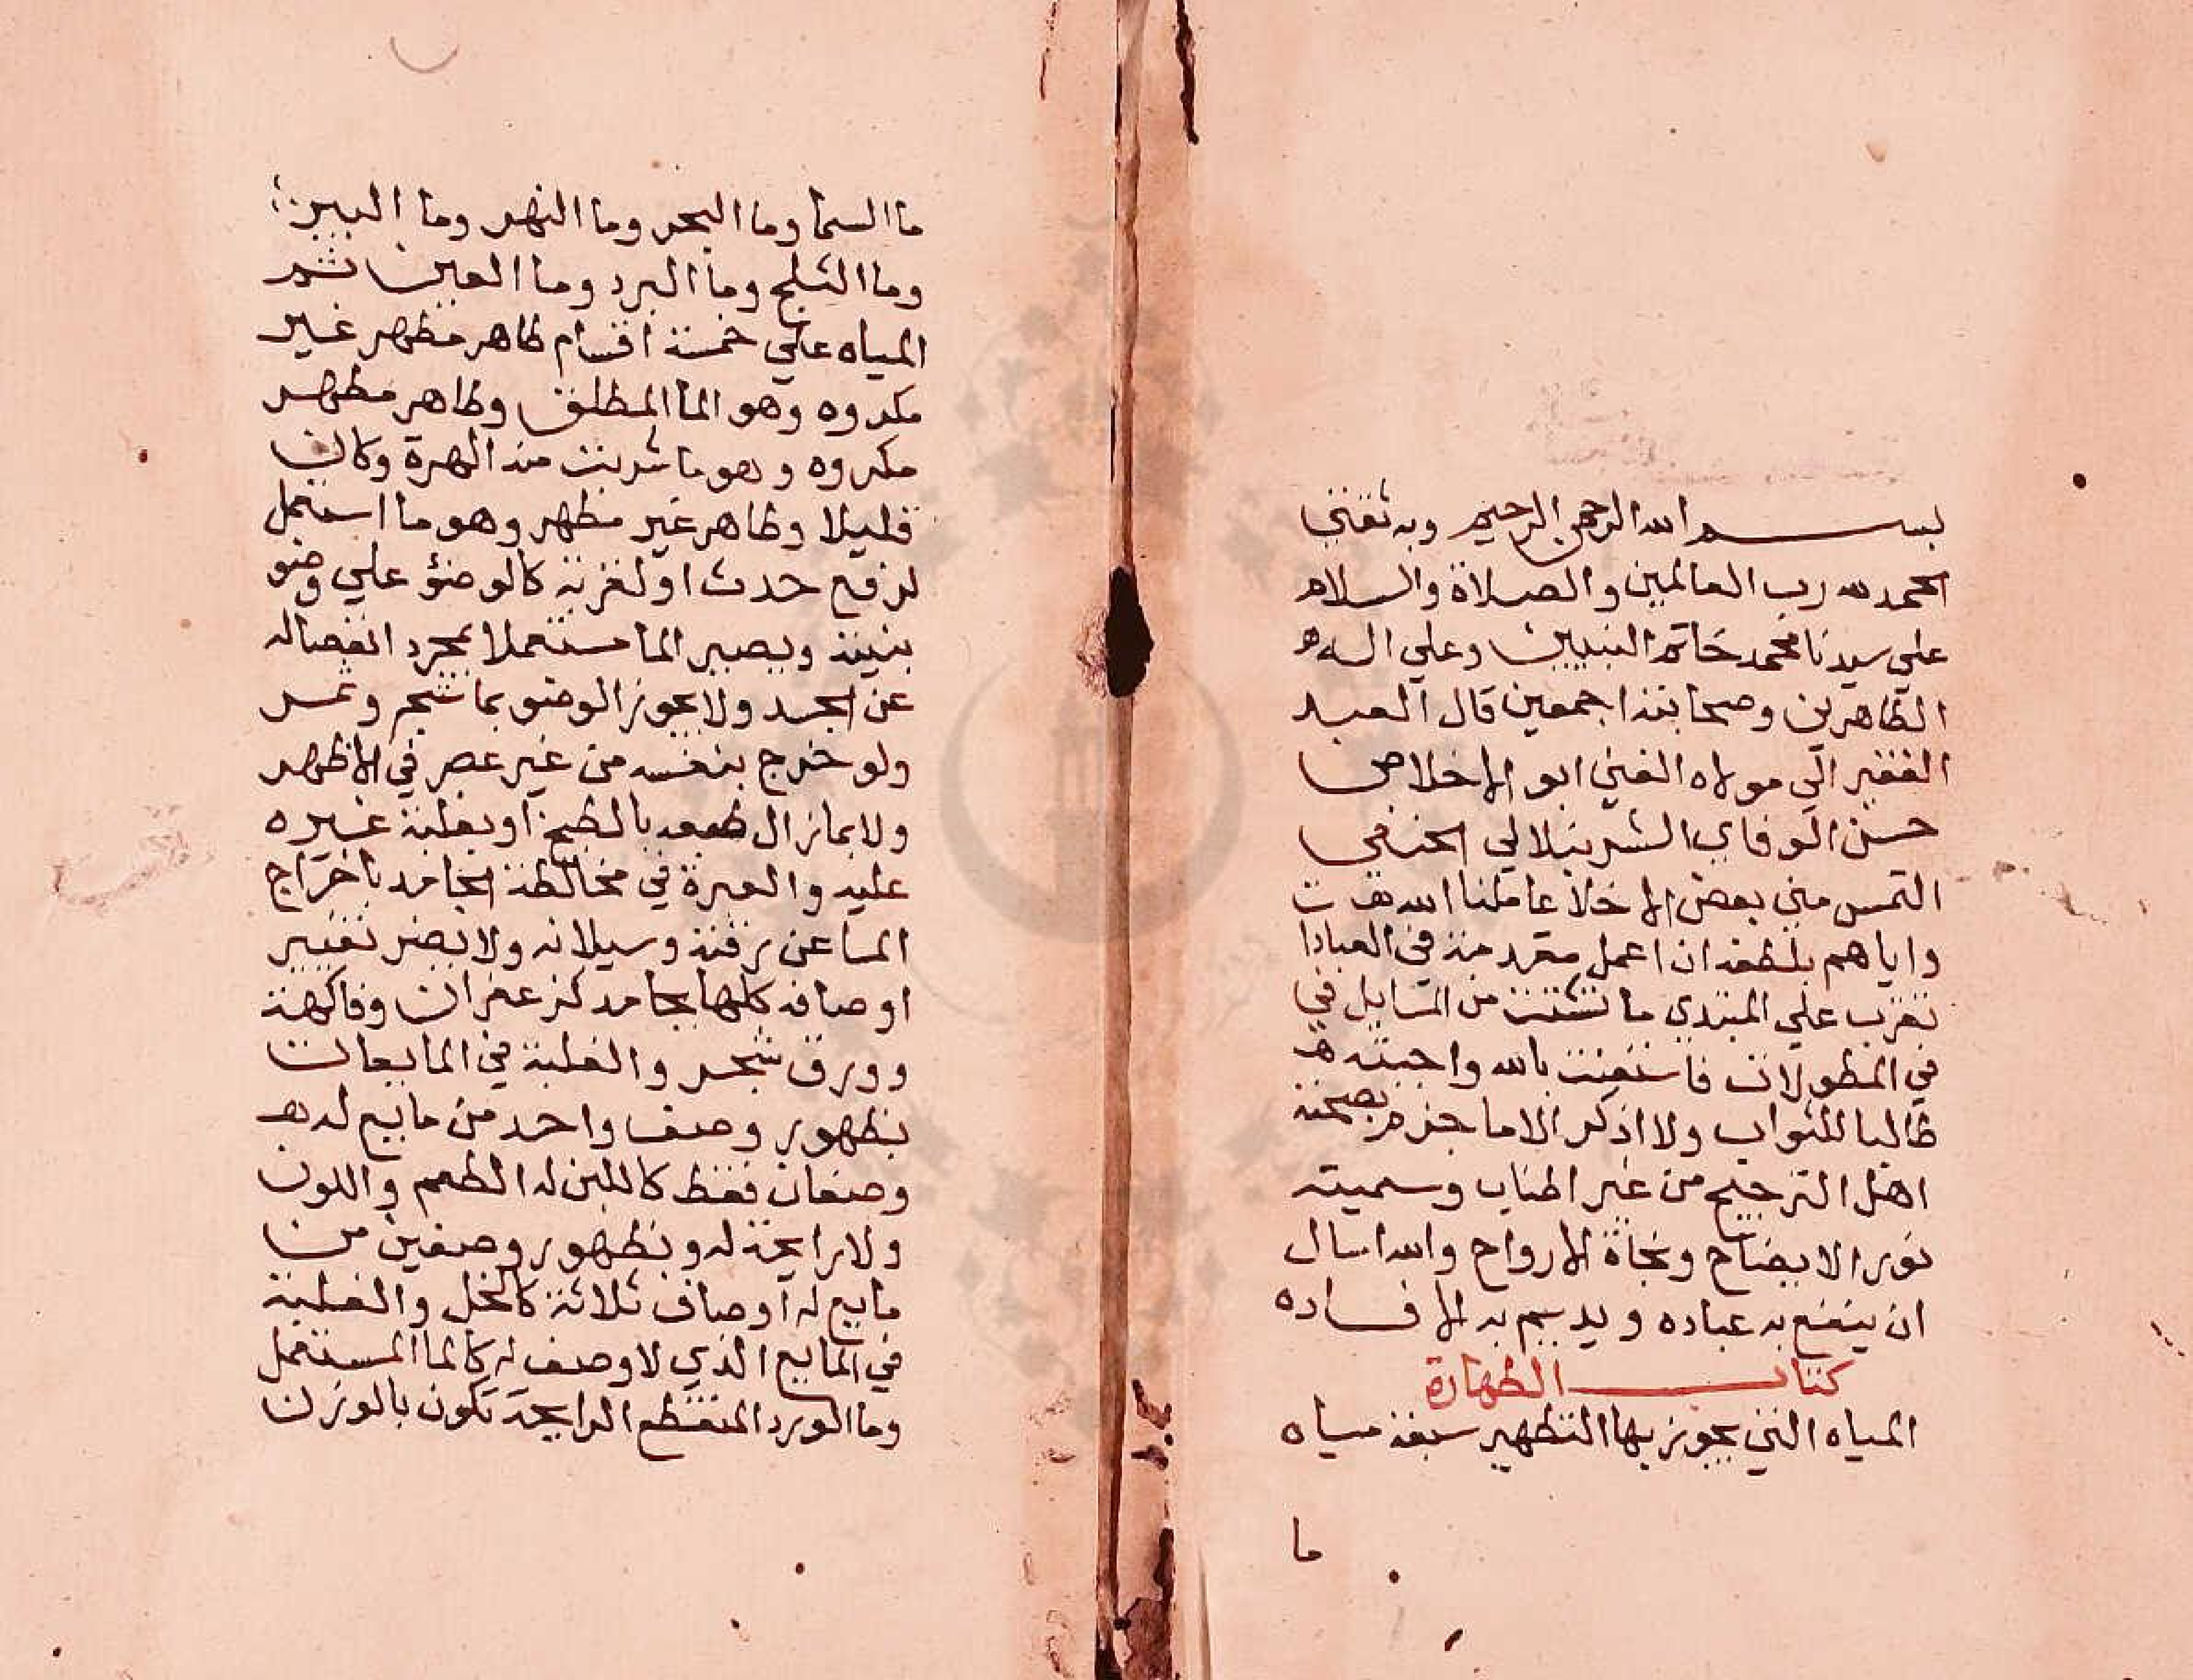 بسم الله الرحمن الرحيم وبه ثقتي
الحمد لله رب العالمين والصلاة والسلام
علي سيدنا محمد خاتم النبيين وعلي اله
الطاهرين وصحابته اجمعين قال العبد
الفقير الي مولاه الغني ابو الاخلاص
حسن الوفاي الشرنبلالي الحنفي
التمس مني بعض الاخلا عاملنا الله
واياهم بلطفه ان اعمل مقدمة في العبادا
تقرب علي المبتدي ما تشتت من المسايل في
في المطولات فاستعنت بالله واجبته
طالبا للثواب ولا اذكر الا ما جزم بصحته
اهل الترجيح من غير اطناب وسميته
نور الايضاح ونجاة الارواح والله اسال
ان ينفع به عباده ويديم به الافاده
كتاب الطهارة
المياه التي يجوز بها التطهير سبعة مياه
ما
ما السما وما البحر وما النهر وما البير
وما الثلج وما البرد وما العين ثم
المياه علي خمسة اقسام طاهر مطهر غير
مكروه وهو الما المطلق وطاهر مطهر
مكروه وهو ما شربت منه الهرة وكان
قليلا وطاهر غير مطهر وهو ما استعمل
لرفع حدث او لقربة كالوضؤ علي وضو
بنيته ويصير الما مستعملا بمجرد انفصاله
عن الجسد ولا يجوز الوضو بما شجر وثمر
ولو خرج بنفسه من غير عصر في الاظهر
ولا بما زال طبعه بالطبخ او بغلبة غيره
عليه والعبرة في مخالطة الجامد باخراج
الما عن رقته وسيلانه ولا يضر تغيير
اوصافه كلها بجامد كزعفران وفاكهة
وورق شجر والغلبة في المايعات
بظهور وصف واحد من مايع له
وصفان فقط كاللبن له الطعم واللون
ولا رايحة له وبظهور وصفين من
مايع له اوصاف ثلاثة كالخل والغلبة
في المايع الذي لا وصف له كالما المستعمل
وما الورد المنقطع الرايحة تكون بالوزن